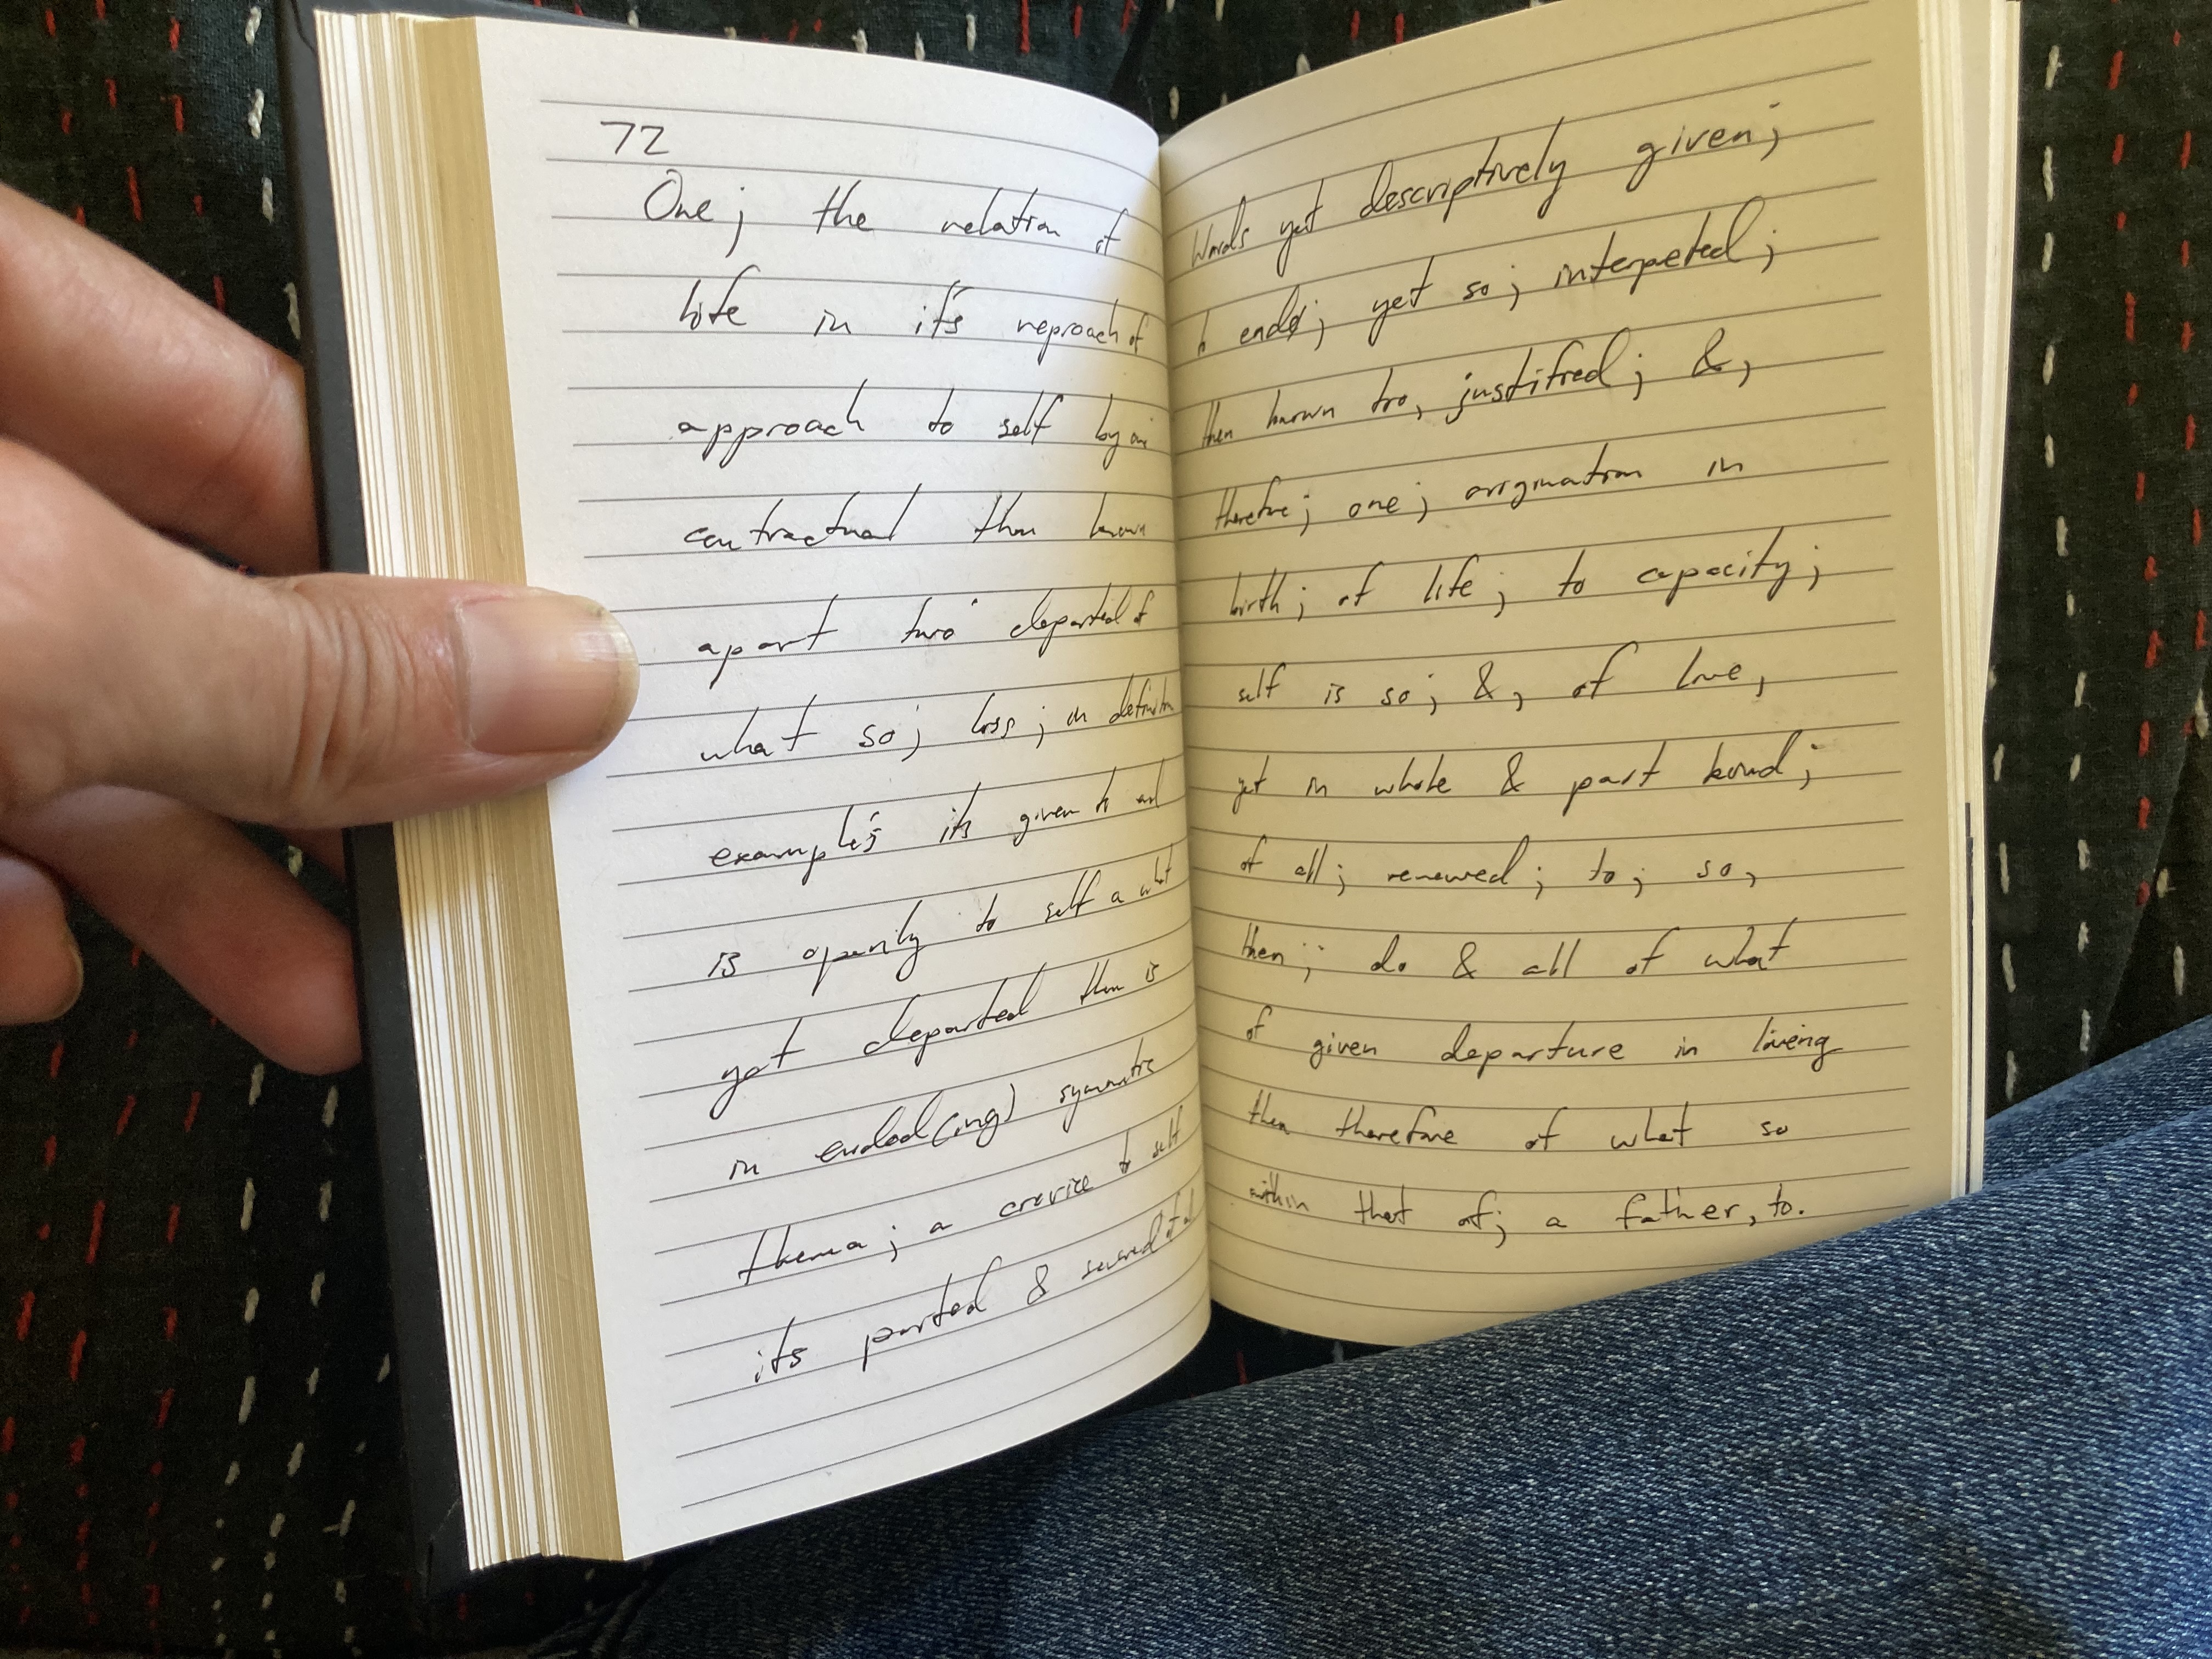 72
One; the relation of
life in it's reproach of
approach to self by an
contractual then known
apart two departed of
what so; loss; in definition
example's its given to and
is openily to self a what
yet departed then is
in ended(ing) symmetric
thema; a crevice to self
its parted & severed of all
Words yet descriptively given;
to ends; yet so; interpeted;
then known too, justified; &,
therefore; one; origination in
birth; of life; to capacity;
self is so; &, of love,
yet in whole & part bond;
of all; renewed; to; so,
then; do & all of what
of given departure in liveing
then therefore of what so
within that of; a father, to.